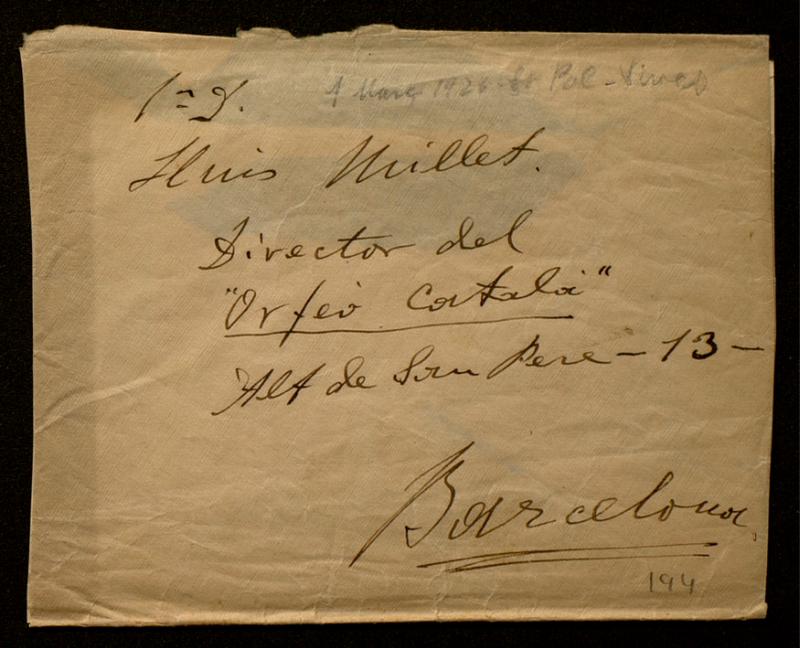 4 Març 1926 - St Pol - Vives
Lluis Millet.
Director del
"Orfeó Català"
Alt de San Pere - 13 -
Barcelona.
194